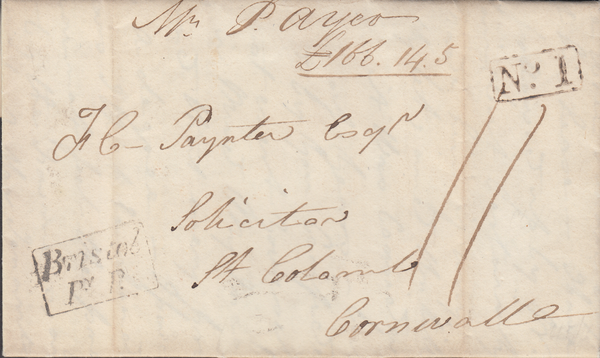 Mr P. Ayers
£166. 14. 5
No. 1
F C Paynter Esqr
Solicitor
St Columb
Cornwall
11
Bristol
Py P.